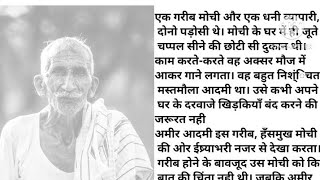 एक गरीब मोची और एक धनी व्यापारी,
दोनो पड़ोसी थे। मोची के घर में ही जूते
चप्पल सीने की छोटी सी दुकान थी।
काम करते-करते वह अक्सर मौज में
आकर गाने लगता। वह बहुत निश्चिंत
मस्तमौला आदमी था। उसे कभी अपने
घर के दरवाजे खिड़कियाँ बंद करने की
जरूरत नही
अमीर आदमी इस गरीब, हँसमुख मोची
की ओर ईष्याभरी नजर से देखा करता।
गरीब होने के बावजूद उस मोची को कि
बात की चिंता नही थी। जबकि अमीर